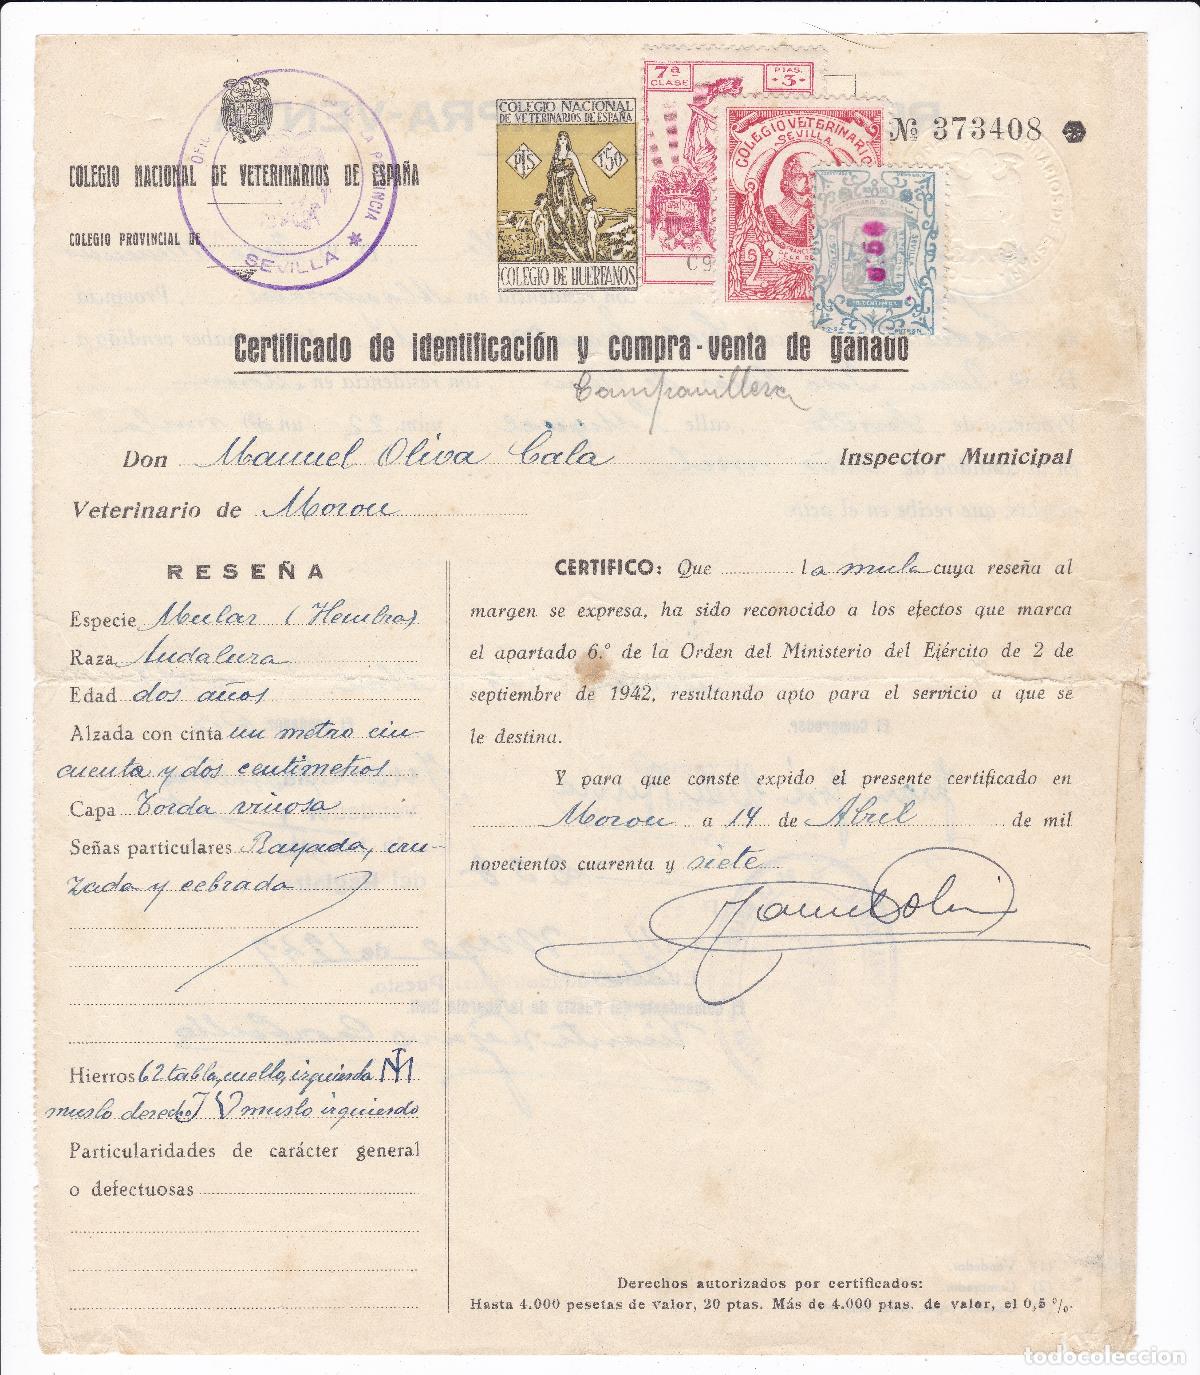 COLEGIO NACIONAL DE VETERINARIOS DE ESPAÑA
COLEGIO PROVINCIAL DE
PROVINCIA
SEVILLA
COLEGIO NACIONAL
DE VETERINARIOS DE ESPAÑA
PTS 1'50
COLEGIO DE HUERFANOS
7ª CLASE
PTAS. 3
C9
COLEGIO VETERINARIO
SEVILLA
2
0.50
Nº 373408
Certificado de identificación y compra-venta de ganado
Campanillera
Don Manuel Oliva Cala Inspector Municipal
Veterinario de Moron
RESEÑA
Especie Mular (Hembra)
Raza Andaluza
Edad dos años
Alzada con cinta un metro cin-
cuenta y dos centimetros
Capa Torda vinosa
Señas particulares Rayada, cru-
zada y cebrada
Hierros 62 tabla, cuello, izquierda M
muslo derecho V muslo izquierdo
Particularidades de carácter general
o defectuosas
CERTIFICO: Que la mula cuya reseña al
margen se expresa, ha sido reconocido a los efectos que marca
el apartado 6.º de la Orden del Ministerio del Ejército de 2 de
septiembre de 1942, resultando apto para el servicio a que se
le destina.
Y para que conste expido el presente certificado en
Moron a 14 de Abril de mil
novecientos cuarenta y siete
Derechos autorizados por certificados:
Hasta 4.000 pesetas de valor, 20 ptas. Más de 4.000 ptas. de valor, el 0,5 %.
todocoleccion